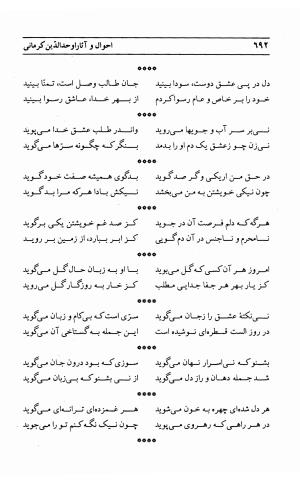 ۶۹۲ احوال و آثار اوحدالدّین کرمانی
****
دل در پی عشق دوست، سودا بینید جان طالب وصل است، تمنّا بینید
خود را بر خاص و عام رسوا کردم از بهر خدا، عاشق رسوا بینید
****
نی بر سر آب و جویها می‌روید واندر طلب عشق خدا می‌پوید
نی زن چو ز عشق یک دم او را بدمد بنگر که چگونه سرّها می‌گوید
****
در حق من ار یکی و گر صد گوید بدگوی همیشه صفت خود گوید
چون نیکی خویشتن به من می‌بخشد نیکش بادا هر که مرا بد گوید
****
هر گه که دلم فرصت آن در جوید کز صد غم خویشتن یکی برگوید
نامحرم و ناجنس در آن دم گویی کز ابر ببارد، از زمین بر روید
****
امروز هر آن کسی که گل می‌بوید با او به زبان حال گل می‌گوید
کز یار بهر هر جفا جدایی مطلب کز خار به روزگار گل می‌روید
****
نی نکتهٔ عشق را ز جان می‌گوید سرّی است که بی‌کام و زبان می‌گوید
در روز الست قطره‌ای نوشیده است این جمله به گستاخی آن می‌گوید
****
بشنو که نی اسرار نهان می‌گوید سوزی که بود درون جان می‌گوید
شد جمله دهان و راز دل می‌گوید از نی بشنو که بی‌زبان می‌گوید
****
هر دل شده‌ای چهره به خون می‌شوید هر غمزده‌ای ترانه‌ای می‌گوید
در هر راهی که رهروی می‌پوید چون نیک نگه کنم تو را می‌جوید
****